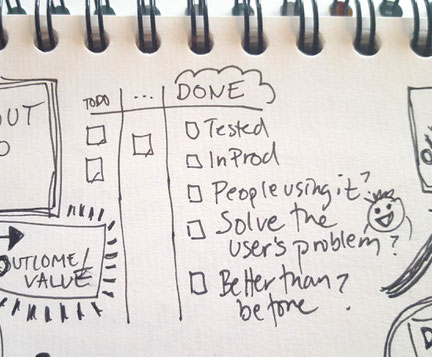 OUT
TODO
...
DONE
Tested
In Prod
People using it?
Solve the
user's problem?
Better than?
before
OUTCOME/
VALUE